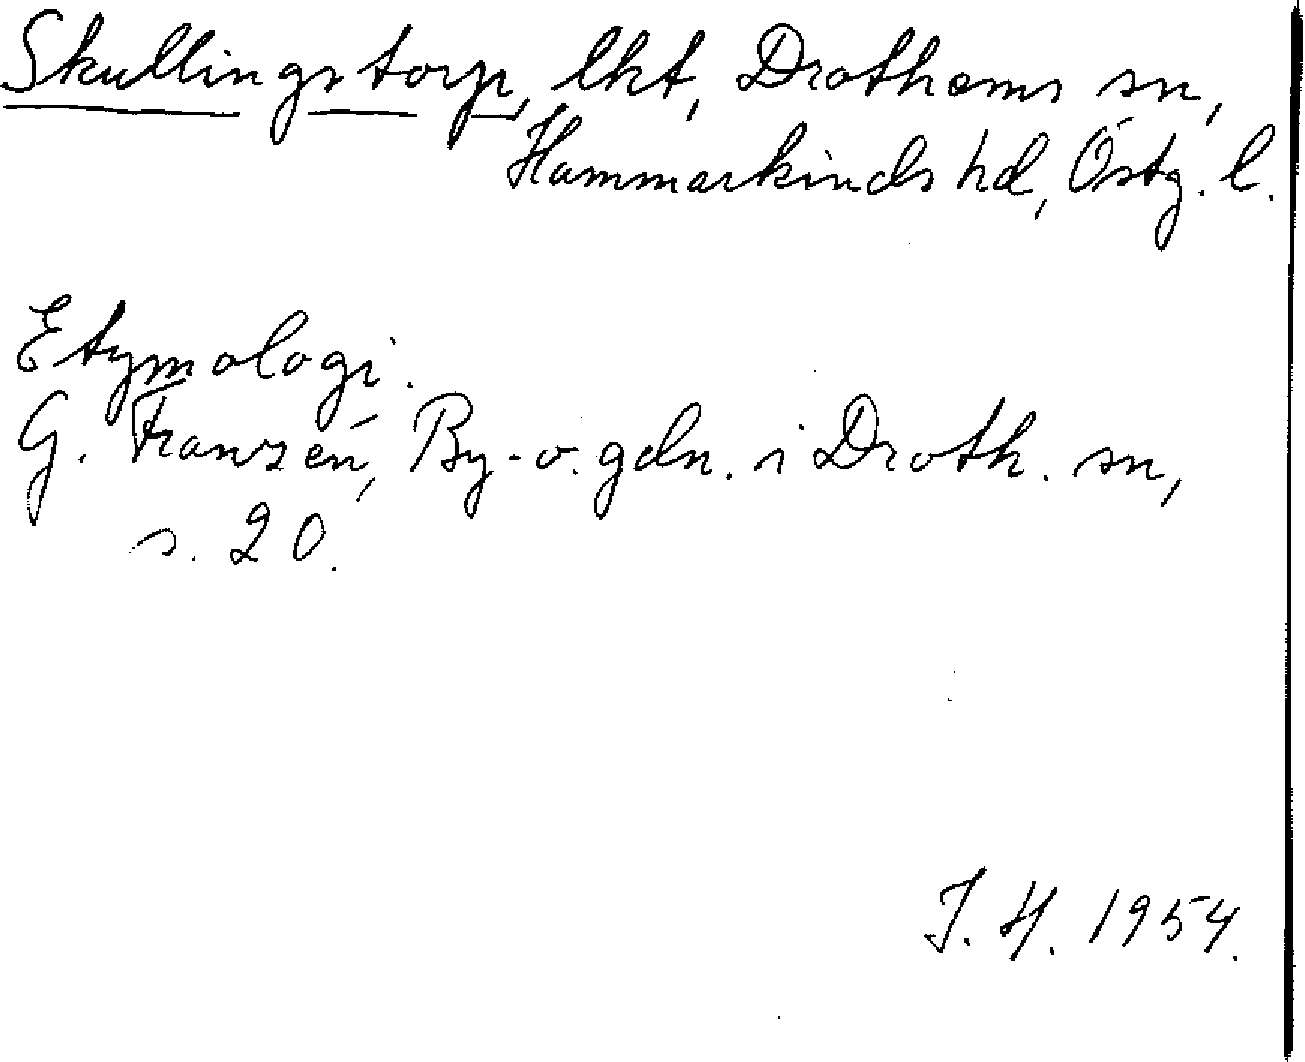 Skullingstorp, lkt, Drothems sn,
Hammarkinds hd, Östg. l.
Etymologi.
G. Franzén, By- o. gdn. i Droth. sn,
s. 20.
J. H. 1954.